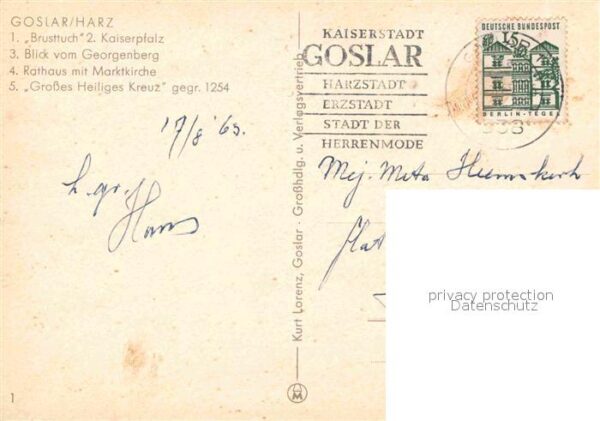 GOSLAR/HARZ
1. „Brusttuch" 2. Kaiserpfalz
3. Blick vom Georgenberg
4. Rathaus mit Marktkirche
5. „Großes Heiliges Kreuz" gegr. 1254
17/8 '65.
h. gr.
Hans
1
Kurt Lorenz, Goslar · Großhdlg. u. Verlagsvertrieb
M
KAISERSTADT
GOSLAR
HARZSTADT
ERZSTADT
STADT DER
HERRENMODE
DEUTSCHE BUNDESPOST
15
BERLIN-TEGEL
338
Mej. Meta Heemskerk
Flat
privacy protection
Datenschutz